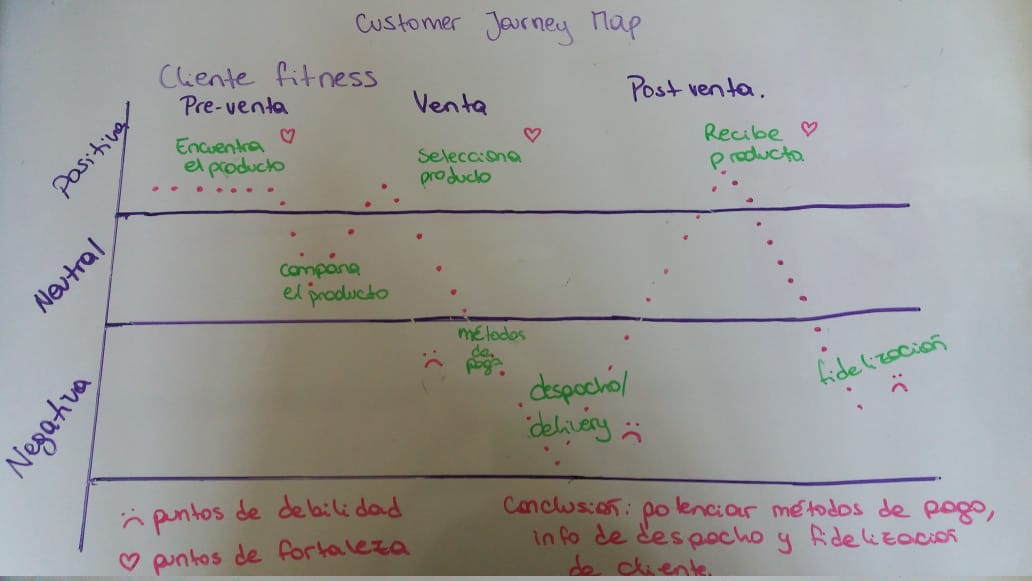 Customer Journey Map
Cliente fitness
Pre-venta
Venta
Post venta.
Positiva
Encuentra
el producto
Selecciona
producto
Recibe
producto
Neutral
compara
el producto
métodos
de
pago
Negativa
despacho/
delivery
fidelización
puntos de debilidad
puntos de fortaleza
Conclusión: potenciar métodos de pago,
info de despacho y fidelización
de cliente.